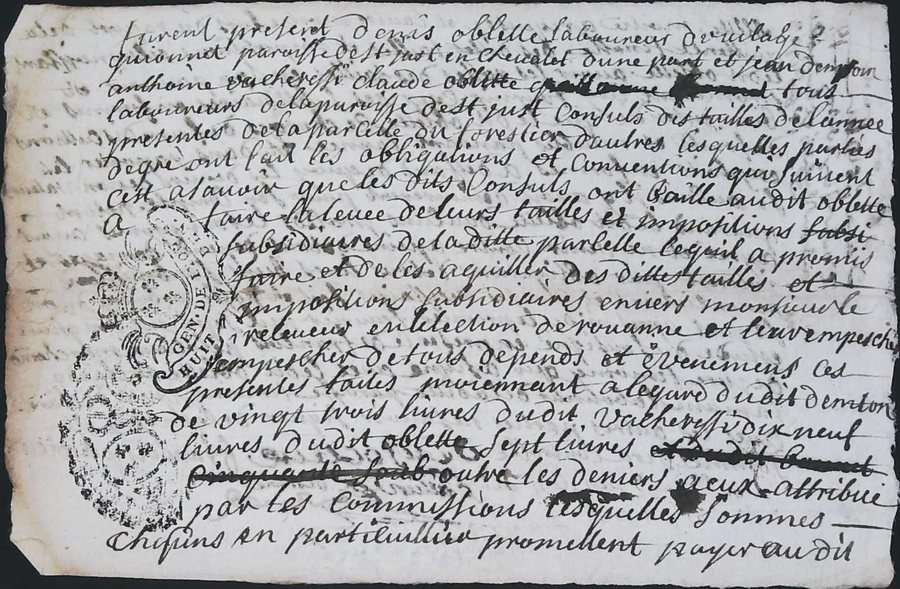 furent presents denis oblette laboureur du vilage
quionnet paroisse de st just en chevalet d'une part et jean demton
anthoine vacheressi claude oblette tous
laboureurs de la paroisse de st just Consuls des tailles de l'annee
presentes de la parcelle du forestier d'autres lesquelles parties
de gre ont fait les obligations et Conventions qui suivent
cest a savoir que les dits Consuls ont baille audit oblette
a faire la levee de leurs tailles et impositions subsi
subsidiaires de la ditte parcelle lequel a promis
faire et de les aquitter des dittes tailles et
impositions subsidiaires envers monsieur le
receveur en lelection de rouanne et leur empesche
dempescher de tous depends et evenemens ces
presentes faites moiennant a legard dudit demton
de vingt trois livres dudit vacheressi dix neuf
livres dudit oblette sept livres et dudit
cinquante outre les deniers a eux attribue
par les Commissions lesquelles sommes
Chacuns en particuillier promettent payer audit
GEN. DE
HUIT